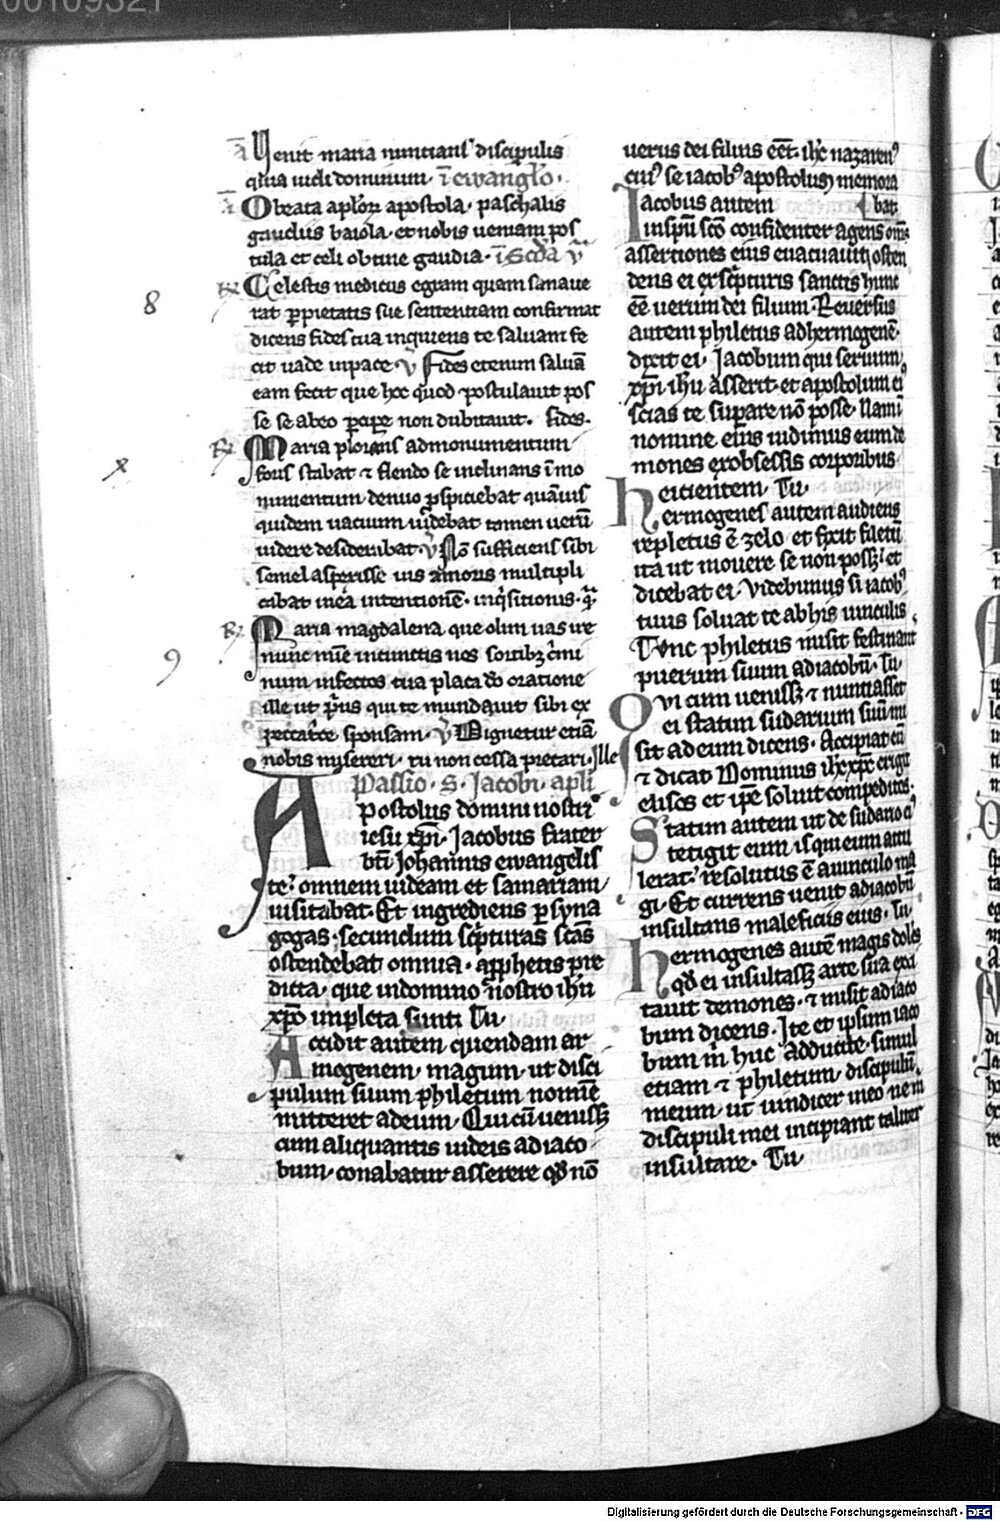 00109321
a̅ Venit maria nuncians discipulis
quia uidi dominum. i̅ ewang̅lo.
a̅ O beata ap̅lor̅ apostola. paschalis
gaudiis baiola. et nobis ueniam pos
tula et celi obtine gaudia. i̅ Sc̅da v̅
8
R̷ Celestis medicus egram quam sanaue
rat p̲pietatis sue sententiam confirmat
dicens fides tua inquiens te saluam fe
cit uade inpace. v̅ Fides etenim saluā
eam fecit que hoc quod postulauit pos
se se ab eo p̲cipe non dubitauit. fides.
x
R̷ Maria plorans ad monumentum
foris stabat ⁊ flendo se inclinans i̅ mo
numentum denuo p̲spiciebat quāuis
quidem uacuum uidebat tamen ueru̅
uidere desiderabat. v̅ No̅ sufficiens sibi
semel aspexisse uis amoris multipli
cabat in ea intentione̅. inq̇sitionis. q̅.
9
R̷ Maria magdalena que olim uas ire
nunc mi̅e in cunctis nos sortibꝫ c̅mi
num infectos tua placa d̅o oratione
ille ut p̅us qui te mundauit sibi ex
peccatrice sponsam. v̅ Dignetur etiā
nobis misereri. tu non cessa precari. Ille
Passio. S. Jacobi. apl̅i
Apostolus domini nostri
iesu xp̅i. Jacobus frater
bt̅i Johannis ewangelis
te. omnem iudeam et samariam
uisitabat. Et ingrediens p̲ syna
gogas. secundum sc̅pturas sc̅as
ostendebat omnia. a p̲phetis pre
dicta. que in domino nostro ih̅u
xp̅o impleta sunt. Tu
Accidit autem quendam ar
mogenem. magum. ut disci
pulum suum philetum nomi̅e
mitteret ad eum. Qui cu̅ uenissꝫ
cum aliquantis iudeis ad iaco
bum. conabatur asserere qd̅ no̅
uerus dei filius eet̅. ih̅c nazaren⁹
cui⁹ se iacob⁹ apostolum memora
Jacobus autem bat.
in sp̅u sc̅o confidenter agens om̅s
assertiones eius euacuauit. osten
dens ei ex sc̅pturis sanctis hunc
e̅e̅ uerum dei filium. Reuersus
autem philetus ad hermogene̅.
dixit ei. Jacobum qui seruum
xp̅i ih̅u asserit. et apostolum ei⁹
scias te sup̲are no̅ posse. Nam i̅
nomine eius uidimus eum de
mones ex obsessis corporibus
eicientem. Tu.
Hermogenes autem audiens
repletus e̅ zelo et fixit filetu̅
ita ut mouere se non possꝫ. et
dicebat ei. Videbimus si iacob⁹
tuus soluat te ab his uinculis.
Tunc philetus misit festinant
puerum suum ad iacobu̅. Tu
Qui cum uenissꝫ ⁊ nuntiasset
ei statim sudarium suu̅ mi
sit ad eum dicens. Accipiat eu̅
⁊ dicat Dominus ih̅c xp̅c erigit
elisos et ip̅e soluit compeditos.
Statim autem ut de sudario ei⁹
tetigit eum is qui eum attu
lerat. resolutus e̅ a uinculo ma
gi. Et currens uenit ad iacobu̅
insultans maleficiis eius. Tu.
Hermogenes aute̅ magis doles
qd̅ ei insultassꝫ arte sua exci
tauit demones. ⁊ misit ad iaco
bum dicens. Ite et ipsum iaco
bum m̅ huc adducite. simul
etiam ⁊ philetum. discipulu̅
meum. ut uindicer in eo ne m̅
discipuli mei incipiant taliter
insultare. Tu
Digitalisierung gefördert durch die Deutsche Forschungsgemeinschaft - DFG